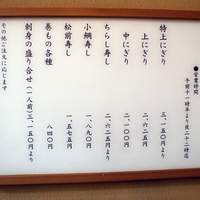 ●営業時間
午前十一時半より夜二十二時迄
特上にぎり 三、一五〇円より
上にぎり 二、六二五円
中にぎり 二、一〇〇円
ちらし寿し 二、六二五円より
小鯛寿し 一、八九〇円
松前寿し 一、五七五円
巻もの各種 八四〇円
刺身の盛り合せ(一人前)三、一五〇円より
その他ご注文に応じます